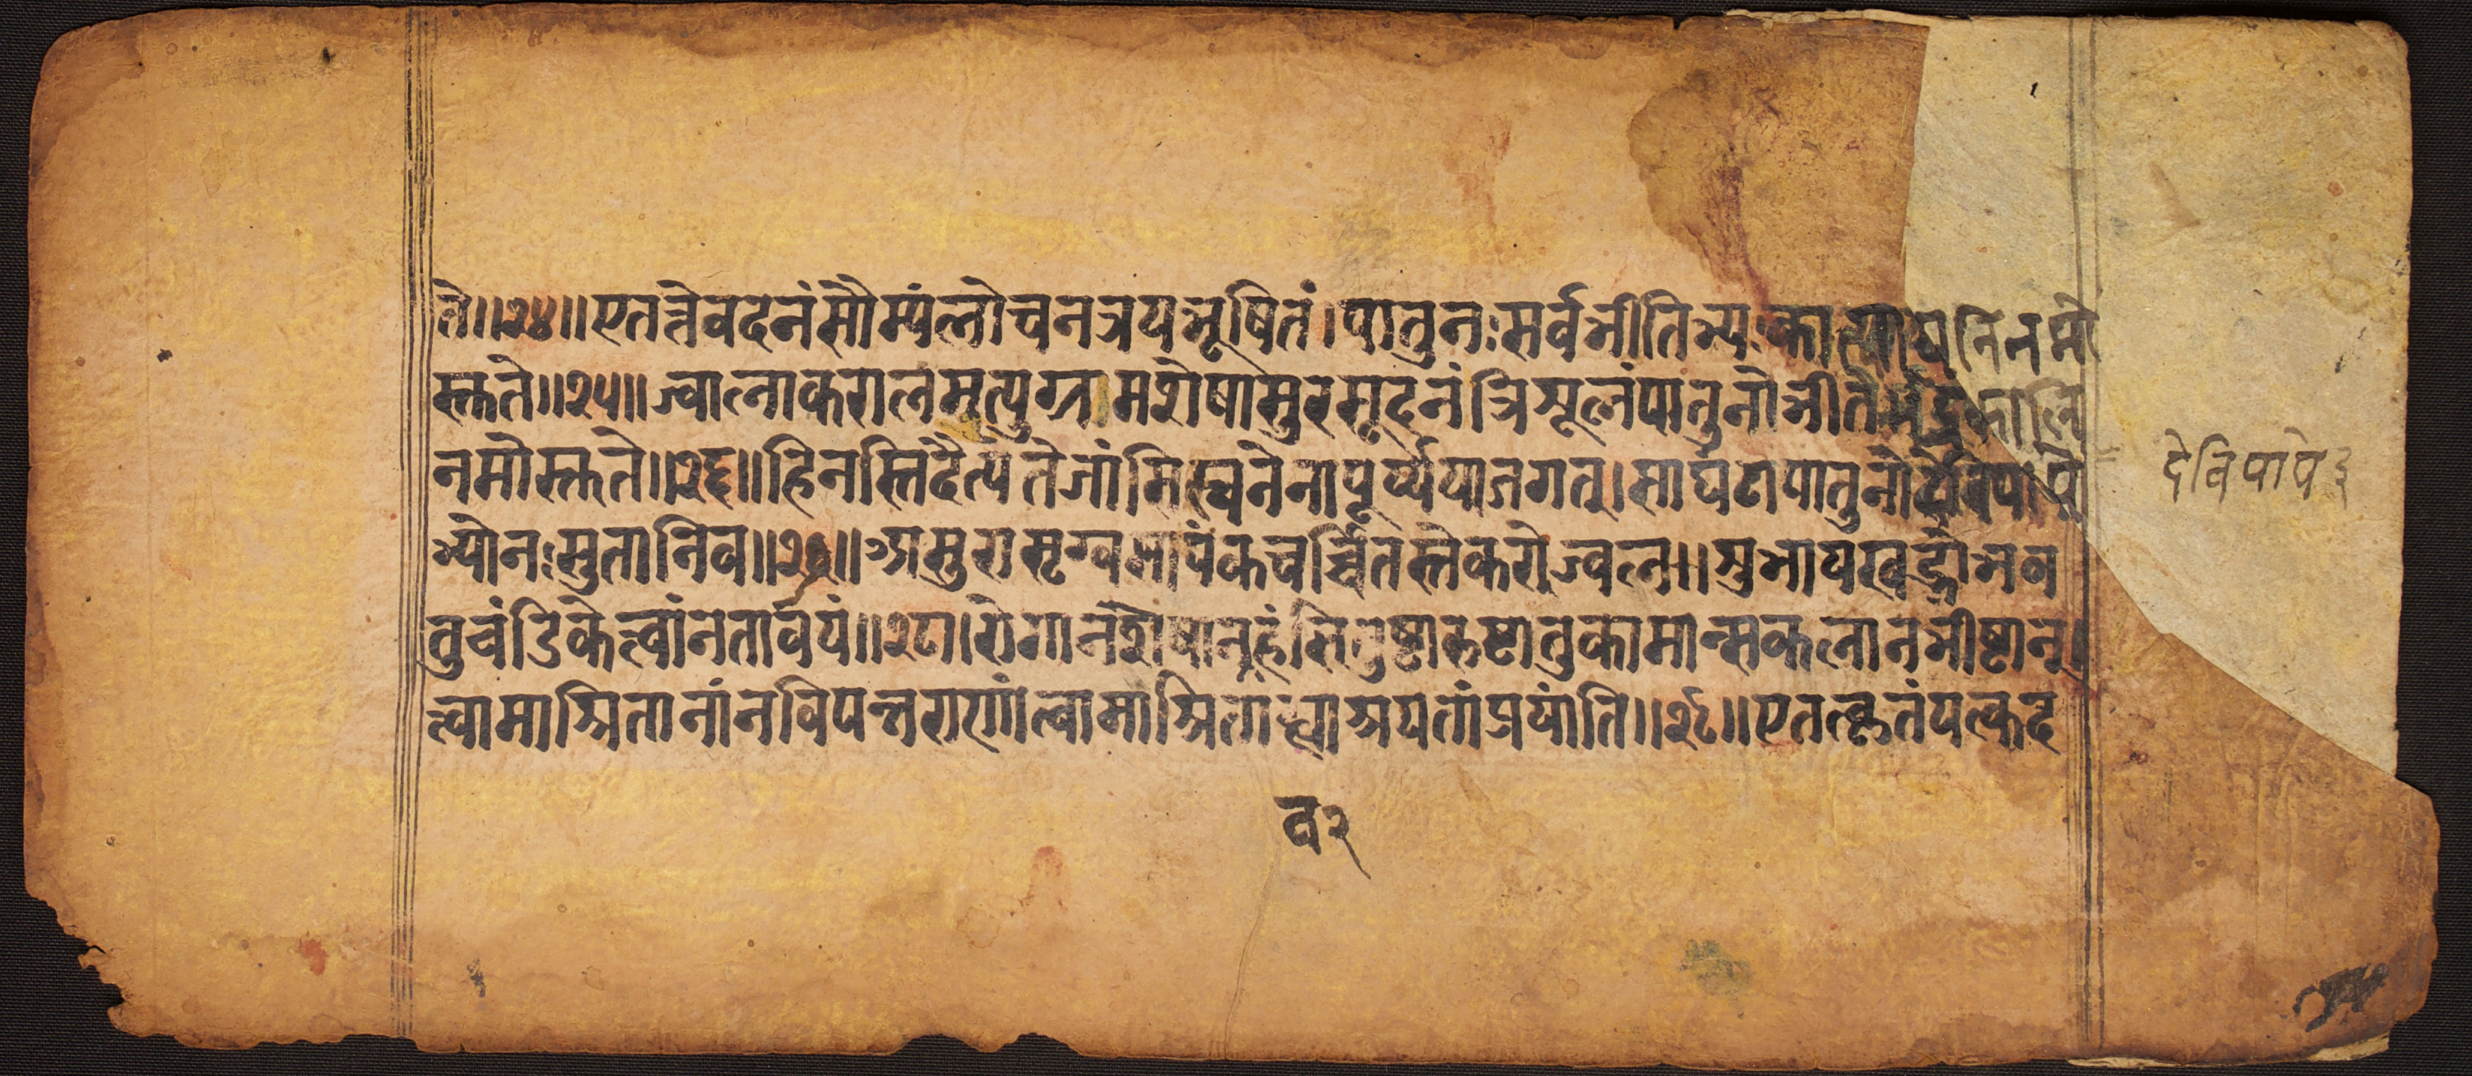 ते॥२४॥एतत्तेवदनंसौम्यंलोचनत्रयभूषितं।पातुनःसर्वभीतिभ्यःकात्यायनिनमो
स्तुते॥२५॥ज्वालाकरालमत्युग्रमशेषासुरसूदनंत्रिशूलंपातुनोभीतेर्भद्रकालि
नमोस्तुते॥२६॥हिनस्तिदैत्यतेजांसिस्वनेनापूर्य्ययाजगत्।साघंटापातुनोदेविपापे
भ्योनःसुतानिव॥२७॥असुरासृग्वसापंकचर्च्चितस्तेकरोज्वल॥शुभायखड्गोभव
तुचंडिकेत्वांनतावयं॥२८।रोगानशेषानहंसितुष्टारुष्टातुकामान्सकलानभीष्टान्।
त्वामाश्रितानांनविपन्नराणांत्वामाश्रिताह्याश्रयतांप्रयांति॥२९॥एतत्कृतंयत्कद
व२
देविपापे३